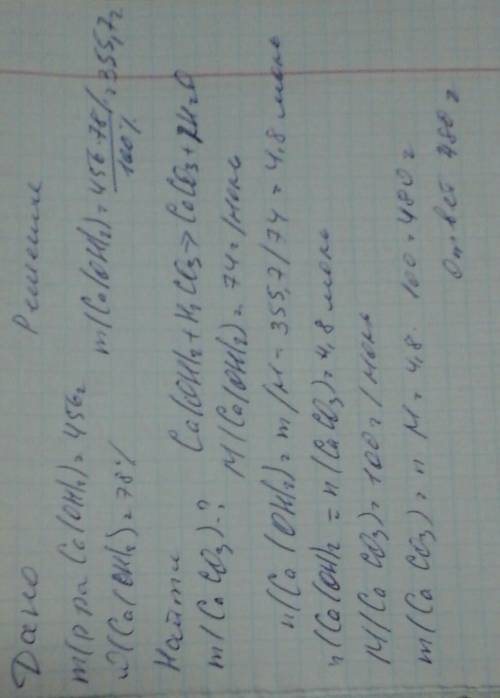 Дано Решение
m(р ра Ca(OH)2)=456г m(Ca(OH)2)=456·78%/100%=355,7г
ω(Ca(OH)2)=78%
Найти Ca(OH)2+H2CO3>CaCO3+2H2O
m(CaCO3)-? M(Ca(OH)2)=74г/моль
n(Ca(OH)2)=m/M=355,7/74=4,8 моль
n(Ca(OH)2=n(CaCO3)=4,8 моль
M(CaCO3)=100г/моль
m(CaCO3)=n M=4,8·100=480г
Ответ 480г